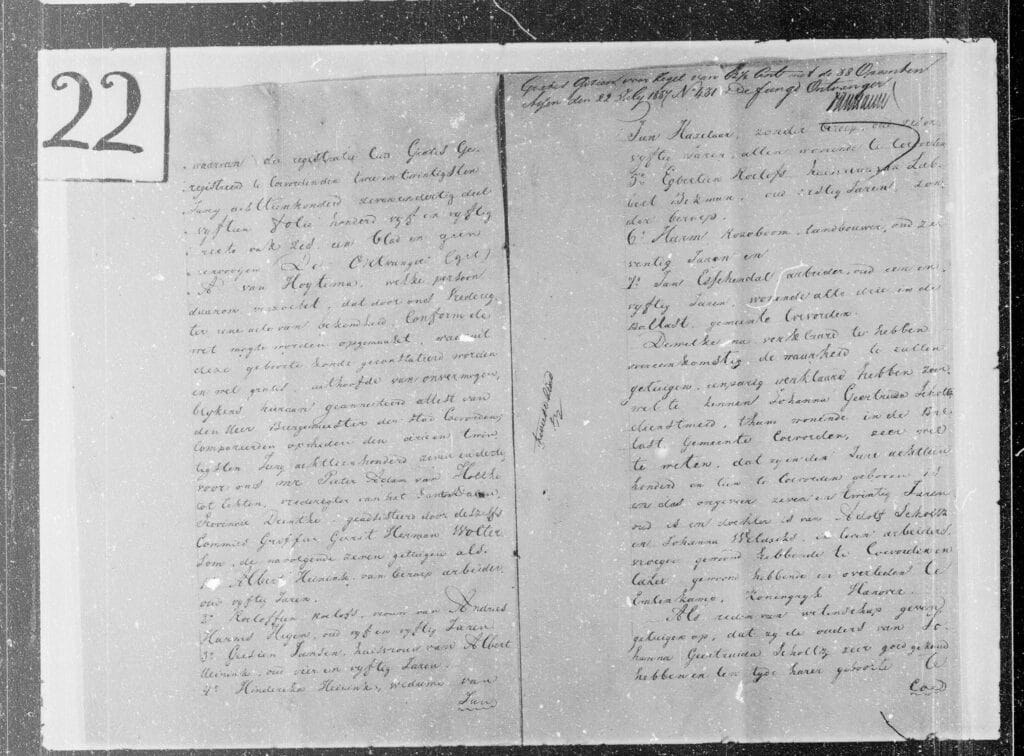 22
waarvan de registratie luis Gratis Ge-
registreerd te Coevorden den twee en twintigsten
Juny achttienhonderd zevenendertig deel
vyftien folio honderd vyf en vyftig
recto vak zes een blad en geen
renvooyen De Ontvanger (get)
A van Hoytema, welke persoon
daarom verzoekt, dat door ons Vredereg-
ter eene acte van bekendheid, Conform de
wet mogte worden opgemaakt, waaruit
deze geboorte konde geconstateerd worden
en wel gratis, uithoofde van onvermogen,
blykens hieraan geannexeerd attest van
den Heer Burgemeester der stad Coevorden,
Compareerden op heden den drieen twin
tigsten Juny achttienhonderd zeven en dertig
voor ons mr Pieter Adam van Holthe
tot Echten, vrederegter van het kanton Dalen,
Provincie Drenthe, geadsisteerd door deszelfs
Commies Griffier Gerrit Herman Wolter
Tom, de navolgende zeven getuigen als.
1o Albert Heinink, van beroep arbeider,
oud vyftig Jaren.
2o Roeloffien Roelofs, vrouw van Andries
Harms Hegen, oud vyf en vyftig Jaren
3o Gesien Jansen, huisvrouw van Albert
Heinink, oud vier en vyftig Jaren.
4o Hinderika Heinink, weduwe van
Jan
tweede blad
Gratis Gezien voor Zegel van met de 38 Opcenten
Assen den 22 July 1837 No 431 De fungd Ontvanger
Jan Hazelaar, zonder beroep, oud
vyftig Jaren, allen wonende te Coevorden
5o Egbertien Roelofs huisvrouw van Lub-
bert Bekman, oud zestig Jaren, zon
der beroep.
6o Harm Rozeboom, landbouwer, oud ze-
ventig Jaren en
7o Jans Esschendal arbeider, oud een en
vyftig Jaren, wonende alle drie in de
Ballast, gemeente Coevorden.
Dewelke na verklaard te hebben
overeenkomstig de waarheid te zullen
getuigen, eenparig verklaard hebben zeer
wel te kennen Johanna Geertruida Scholtz
dienstmeid, thans wonende in de Bal
last, Gemeente Coevorden, zeer wel
te weten, dat zy in den Jare achttien
honderd en tien te Coevorden geboren is
en dus ongeveer zeven en twintig Jaren
oud is en dochter is van Adolf Scholtz
en Johanna in leven arbeiders
vroeger gewoond hebbende te Coevorden en
later gewoond hebbende en overleden te
Emlenkamp, Koningryk Hanover.
Als reden van wetenschap geven
getuigen op, dat zy de ouders van Jo-
hanna Geertruida Scholtz zeer goed gekend
hebben en ten tyde harer geboorte te
Coe